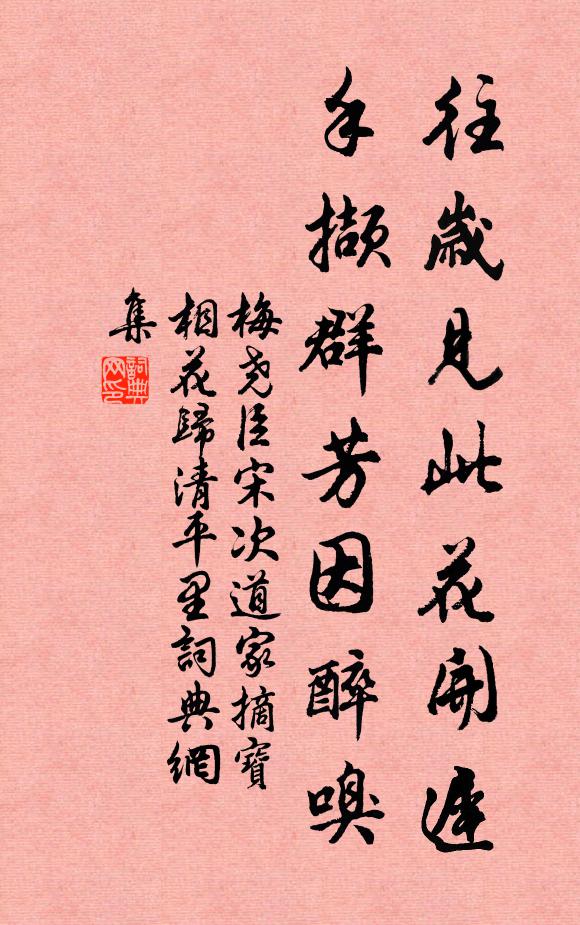 往歲見此花開遲
手擷群芳因醉嗅
梅堯臣宋次道家摘寶
相花歸清平里詞典網
集
詞典網印